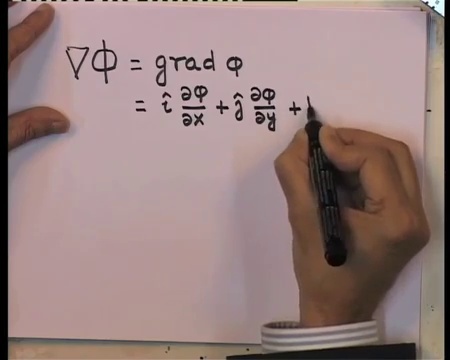 ∇Φ = grad φ
= î ∂φ/∂x + ĵ ∂φ/∂y +